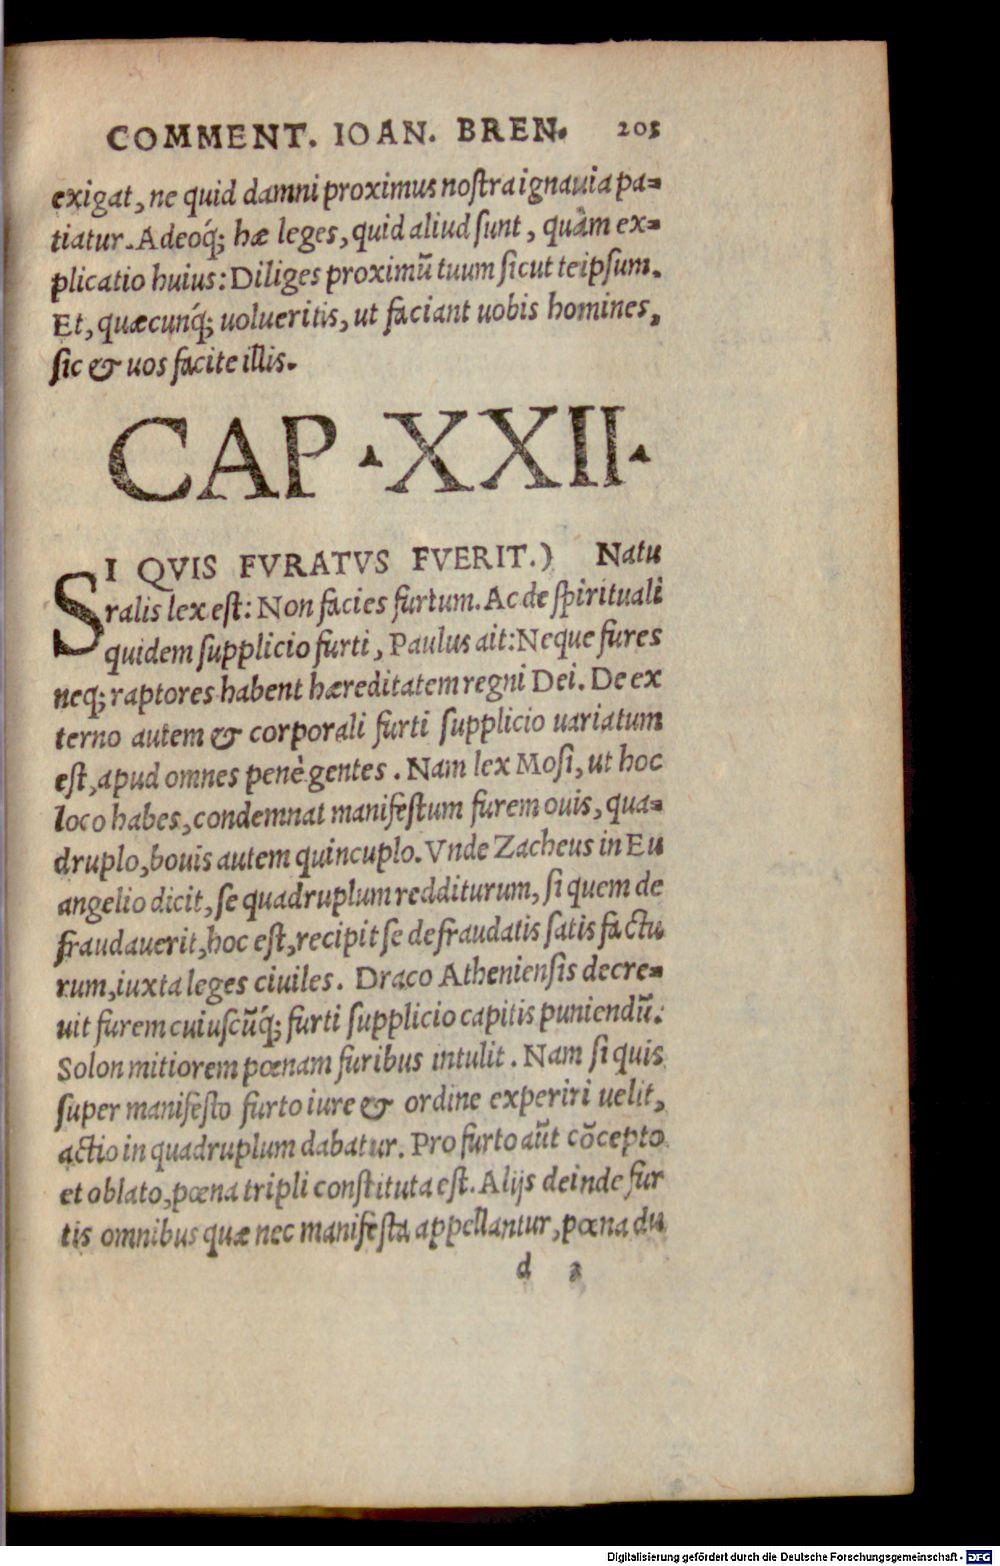 COMMENT. IOAN. BREN. 203
exigat, ne quid damni proximus nostra ignauia pa=
tiatur. Adeoq́; hæ leges, quid aliud sunt, quàm ex=
plicatio huius: Diliges proximũ tuum sicut teipsum.
Et, quæcunq́; uolueritis, ut faciant uobis homines,
sic & uos facite illis.
CAP. XXII.
SI QVIS FVRATVS FVERIT.) Natu
ralis lex est: Non facies furtum. Ac de spirituali
quidem supplicio furti, Paulus ait: Neque fures
neq; raptores habent hæreditatem regni Dei. De ex
terno autem & corporali furti supplicio uariatum
est, apud omnes penè gentes. Nam lex Mosi, ut hoc
loco habes, condemnat manifestum furem ouis, qua=
druplo, bouis autem quincuplo. Vnde Zacheus in Eu
angelio dicit, se quadruplum redditurum, si quem de
fraudauerit, hoc est, recipit se defraudatis satis factu
rum, iuxta leges ciuiles. Draco Atheniensis decre=
uit furem cuiuscũq́; furti supplicio capitis puniendũ:
Solon mitiorem pœnam furibus intulit. Nam si quis
super manifesto furto iure & ordine experiri uelit,
actio in quadruplum dabatur. Pro furto aũt cõcepto
et oblato, pœna tripli constituta est. Alijs deinde fur
tis omnibus quæ nec manifesta appellantur, pœna du
d 2
Digitalisierung gefördert durch die Deutsche Forschungsgemeinschaft - DFG